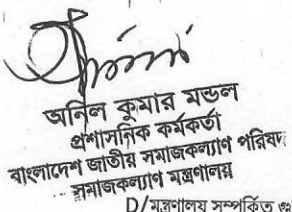 অনিল কুমার মন্ডল
প্রশাসনিক কর্মকর্তা
বাংলাদেশ জাতীয় সমাজকল্যাণ পরিষদ
সমাজকল্যাণ মন্ত্রণালয়
D/মন্ত্রণালয় সম্পর্কিত